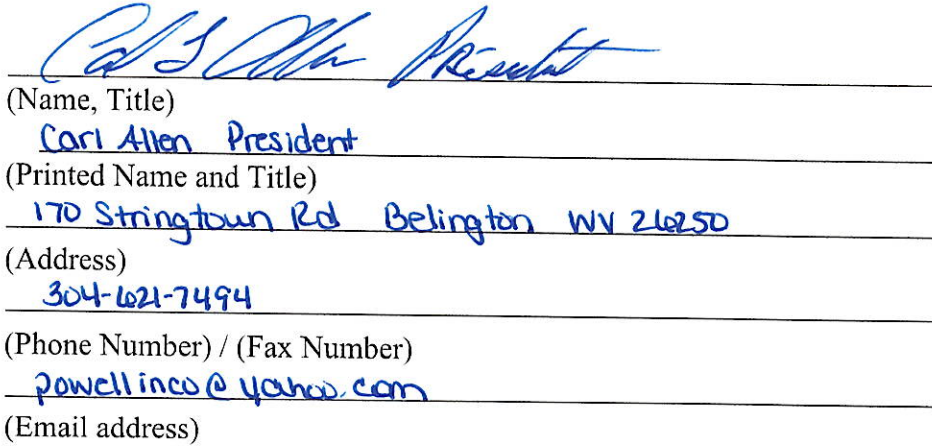 Carl L Allen President
(Name, Title)
Carl Allen President
(Printed Name and Title)
170 Stringtown Rd Belington WV 26250
(Address)
304-621-7494
(Phone Number) / (Fax Number)
powellinco@yahoo.com
(Email address)